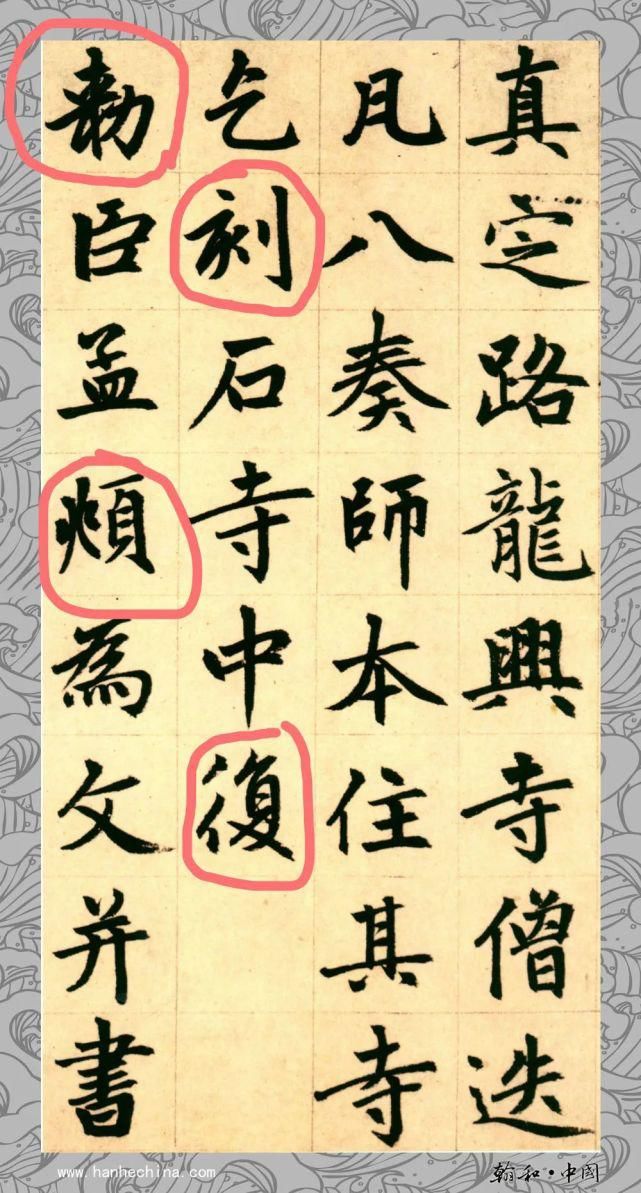 真定路龍興寺僧迭
凡八奏師本住其寺
乞刻石寺中復
勅臣孟頫為文并書
www.hanhechina.com
翰和·中國